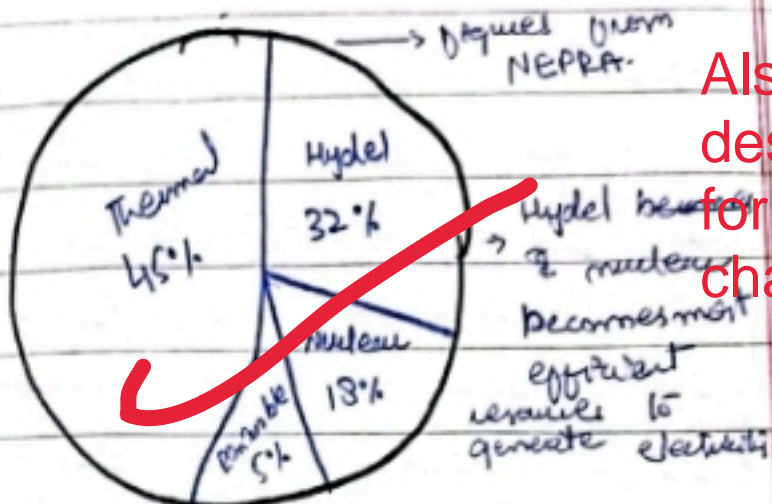 → figures from
NEPRA.
Thermal
45%
Hydel
32%
Nuclear
18%
5%
→ Hydel
& nuclear
becomes most
efficient
to
generate electricity
Als
des
for
cha